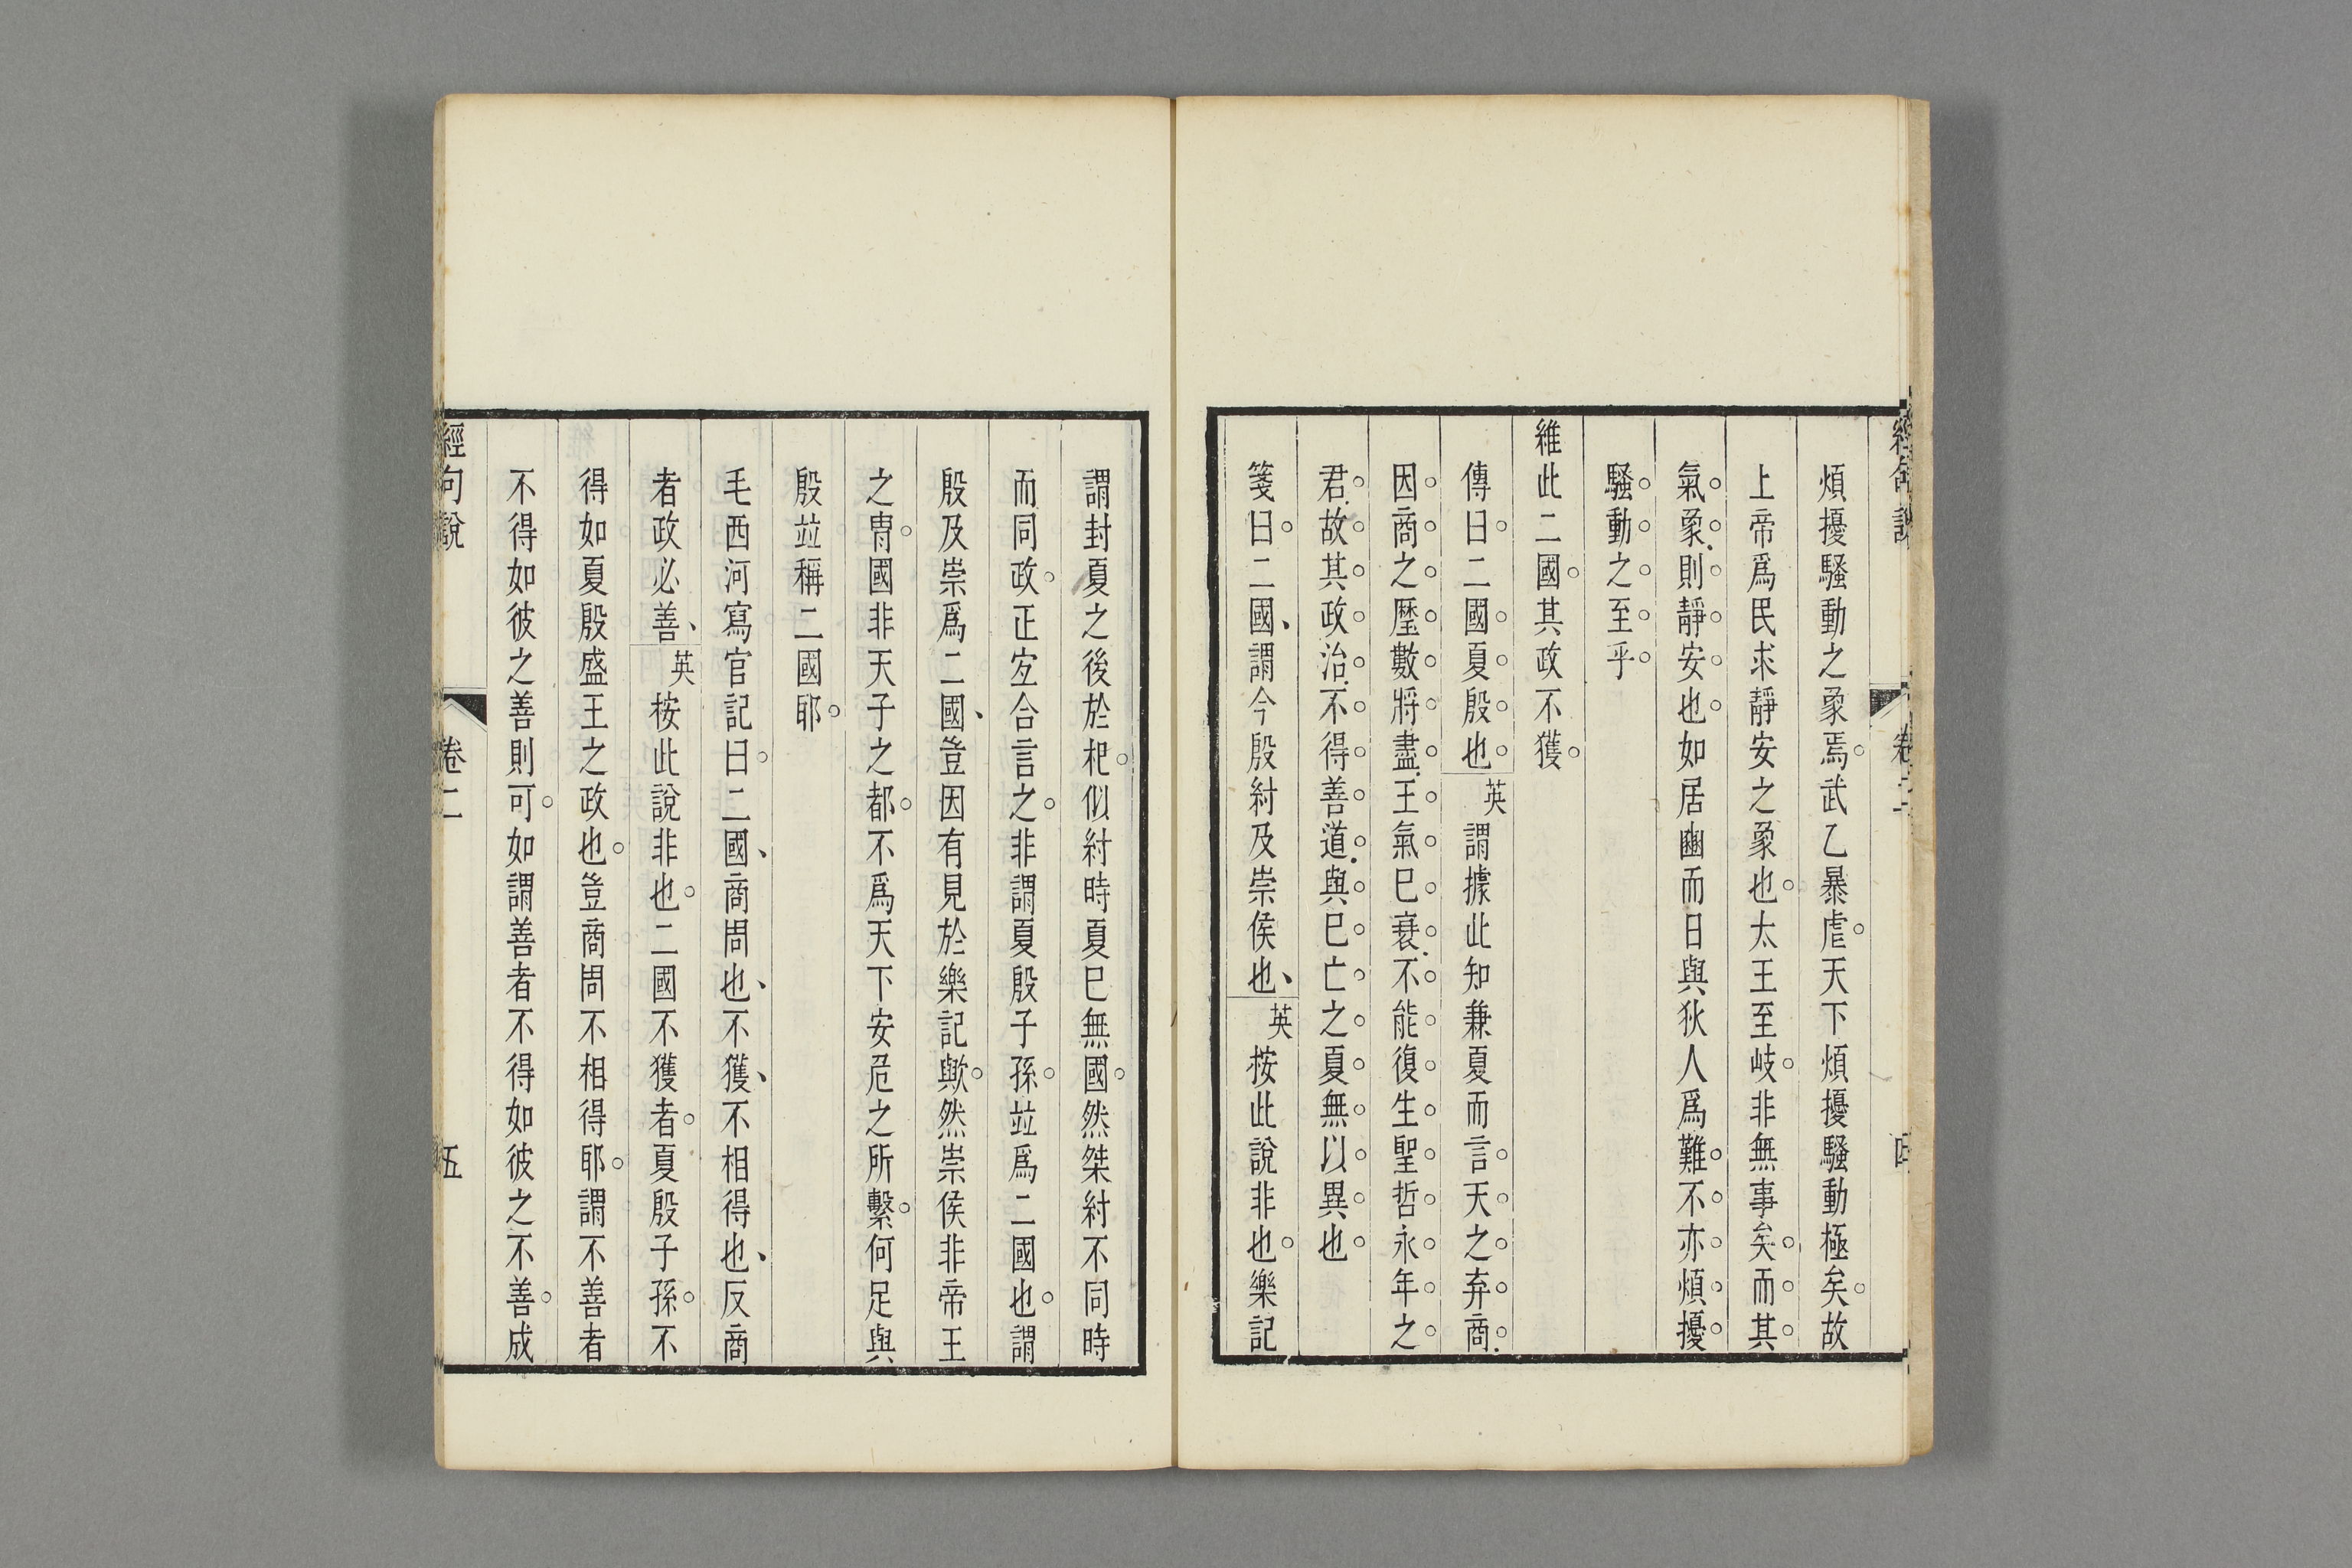 煩擾騷動之象焉武乙暴虐天下煩擾騷動極矣故
上帝爲民求靜安之象也太王至岐非無事矣而其
氣象則靜安也如居豳而日與狄人爲難不亦煩擾
騷動之至乎
維此二國其政不獲
傳曰二國夏殷也英謂據此知兼夏而言天之弃商
因商之歷數將盡王氣巳衰不能復生聖哲永年之
君故其政治不得善道與巳亡之夏無以異也
箋曰二國謂今殷紂及崇侯也英按此說非也樂記
謂封夏之後於杞似紂時夏巳無國然桀紂不同時
而同政正宐合言之非謂夏殷子孫竝爲二國也謂
殷及崇爲二國豈因有見於樂記歟然崇侯非帝王
之冑國非天子之都不爲天下安危之所繫何足與
殷竝稱二國耶
毛西河寫官記曰二國商周也不獲不相得也反商
者政必善英按此說非也二國不獲者夏殷子孫不
得如夏殷盛王之政也豈商周不相得耶謂不善者
不得如彼之善則可如謂善者不得如彼之不善成
經句說
卷二
五